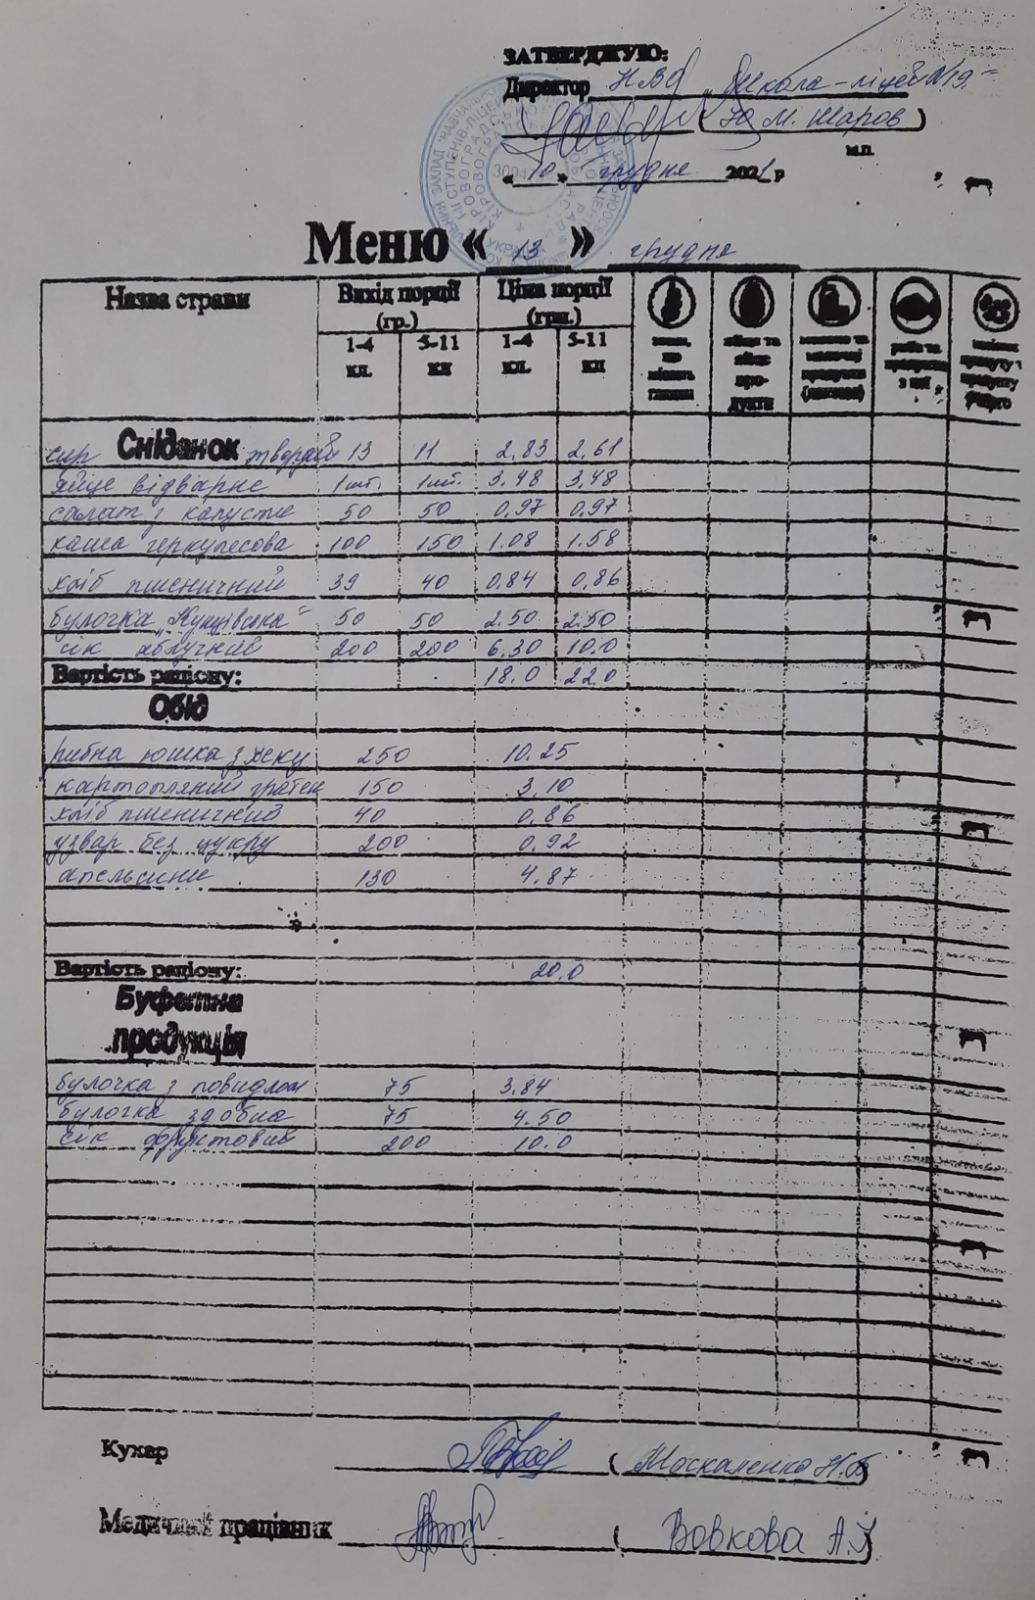 ЗАТВЕРДЖУЮ:
Директор НВО Школа-ліцей №19
(Ю.М. Жаров)
м.п.
«10» грудня 2021 р
Меню « 13 » грудня
Назва страви Вихід порції (гр.) Ціна порції (грн.)
1-4 кл. 5-11 кл 1-4 кл. 5-11 кл
злаки, що містять глютен
яйця та яйце продукти
молоко та молочні продукти (лактоза)
риба та продукти з неї
Сніданок
сир твердий 13 11 2.83 2.61
яйце відварне 1шт. 1шт. 3.48 3.48
салат з капусти 50 50 0.97 0.97
каша геркулесова 100 150 1.08 1.58
хліб пшеничний 39 40 0.84 0.86
булочка "Кунцівська" 50 50 2.50 2.50
сік яблучний 200 200 6.30 10.0
Вартість раціону: 18.0 22.0
Обід
рибна юшка з хеку 250 10.25
картопляний гратен 150 3.10
хліб пшеничний 40 0.86
узвар без цукру 200 0.92
апельсини 130 4.87
Вартість раціону: 20.0
Буфетна продукція
булочка з повидлом 75 3.84
булочка здобна 75 4.50
сік фруктовий 200 10.0
Кухар (Москаленко Н.В)
Медичний працівник (Вовкова А.)